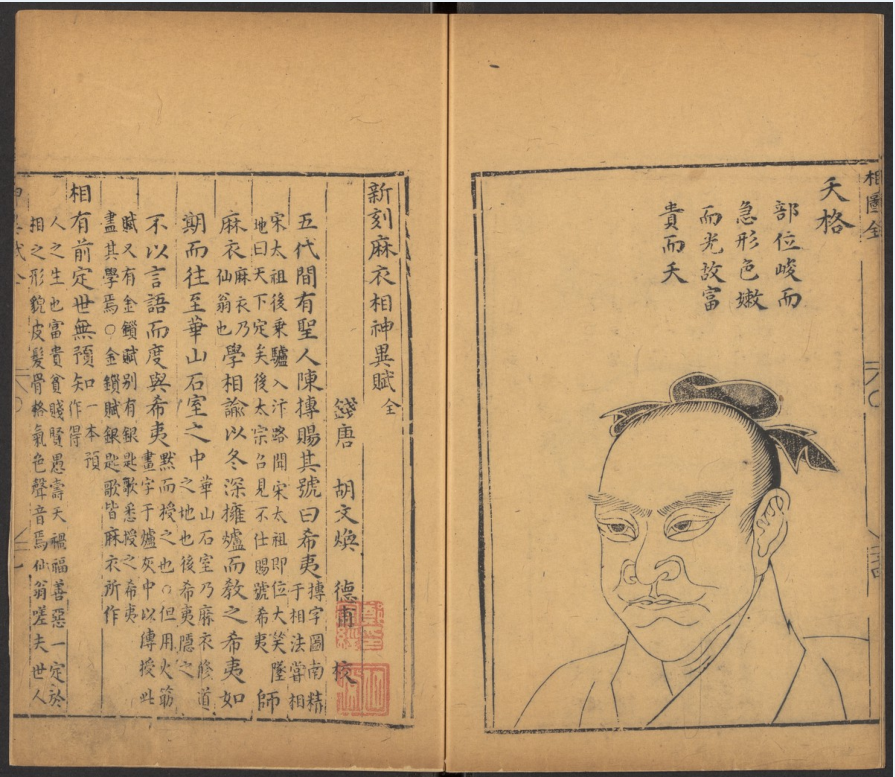 相圖全
夭格
部位峻而
急形色嫩
而光故富
貴而夭
新刻麻衣相神異賦全
錢唐 胡文煥 德甫 校
五代間有聖人陳摶賜其號曰希夷
摶字圖南精
于相法嘗相
宋太祖後乘驢入汴路聞宋太祖即位大笑墜
地曰天下定矣後太宗召見不仕賜號希夷
師
麻衣
麻衣乃
仙翁也
學相諭以冬深擁爐而教之希夷如
期而往至華山石室之中
華山石室乃麻衣修道
之地也後希夷隱之
不以言語而度與希夷
默而授之也○但用火筯
畫字于爐灰中以傳授此
賦又有金鎖賦别有銀匙歌悉授之希夷
盡其學焉○金鎖賦銀匙歌皆麻衣所作
相有前定世無預知
一本預
作得
人之生也富貴貧賤賢愚壽夭禍福善惡一定於
相之形貌皮髮骨格氣色聲音焉仙翁嗟夫世人